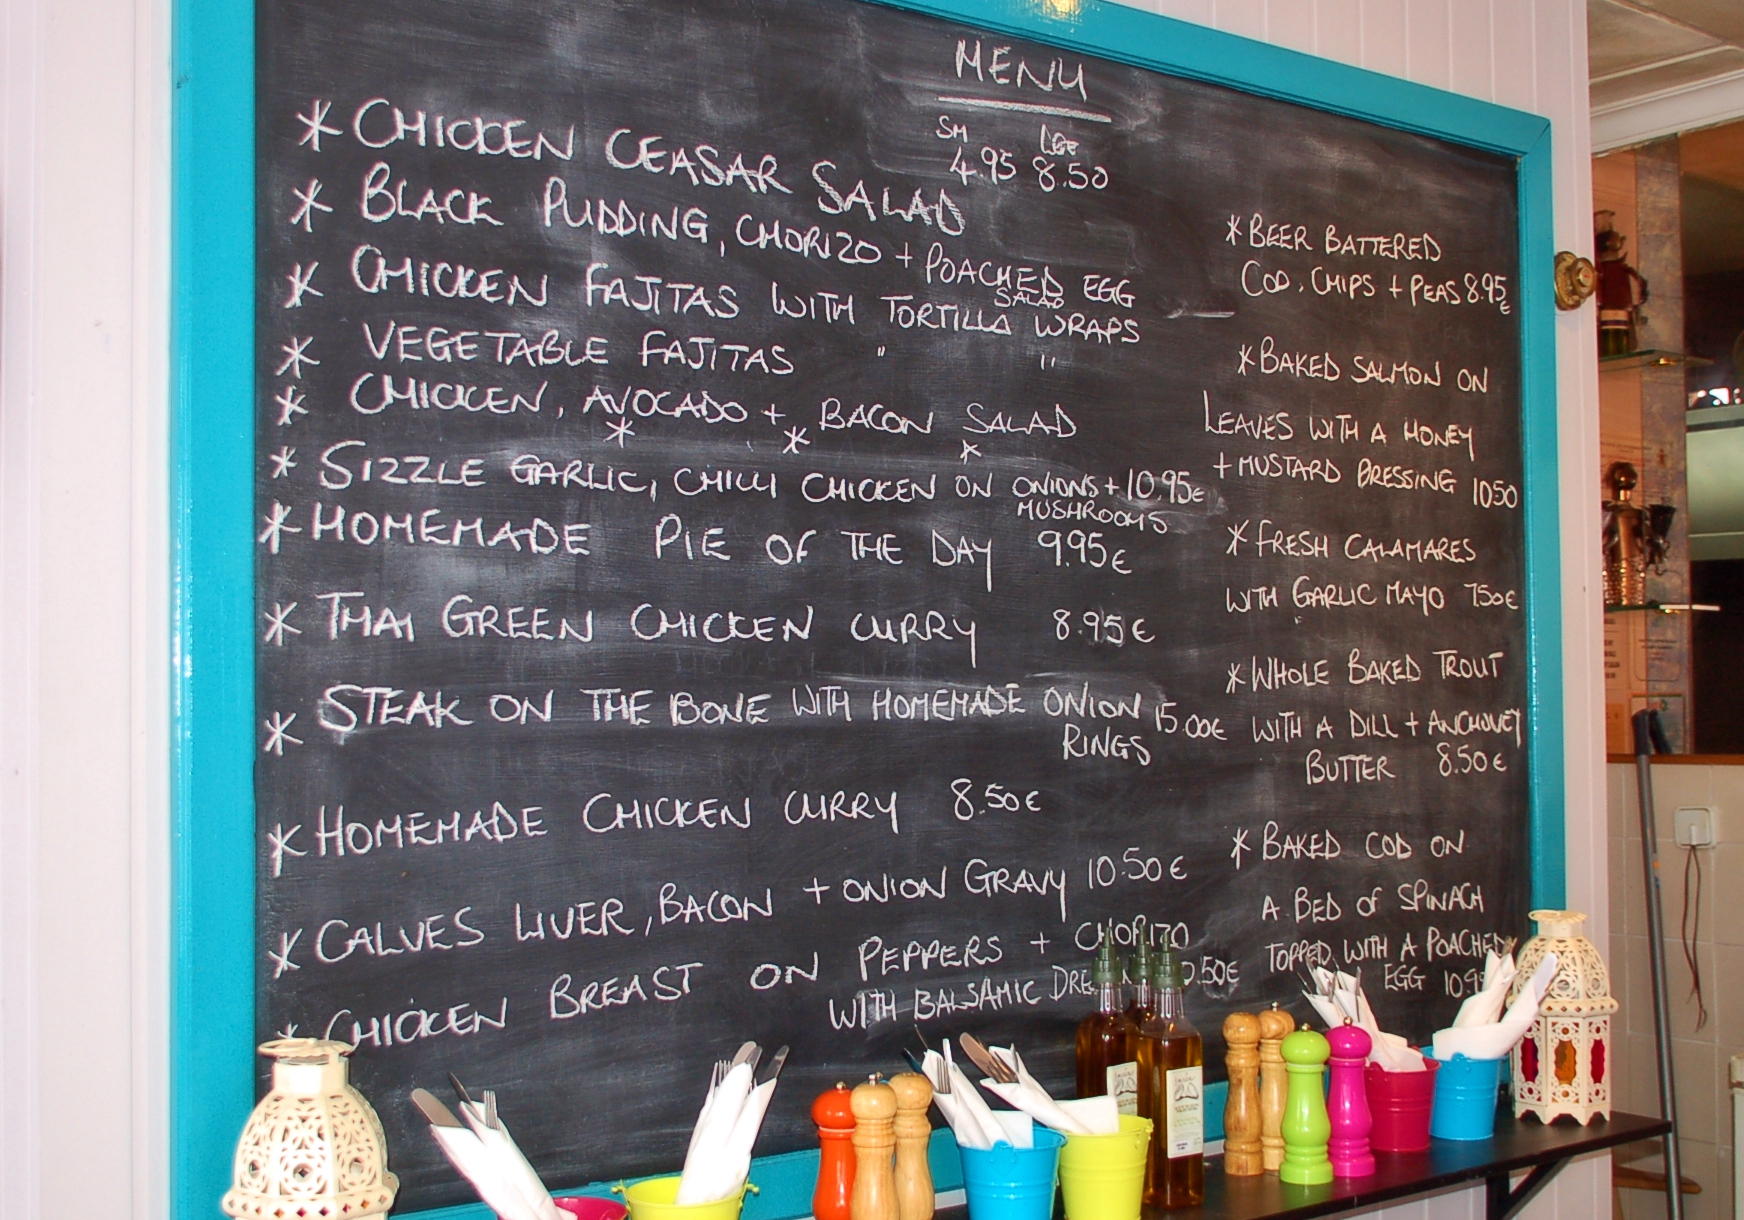 MENU
SM LGE
4.95 8.50
* CHICKEN CEASAR SALAD
* BLACK PUDDING, CHORIZO + POACHED EGG
SALAD
* CHICKEN FAJITAS WITH TORTILLA WRAPS
* VEGETABLE FAJITAS " "
* CHICKEN, AVOCADO + BACON SALAD
* * *
* SIZZLE GARLIC, CHILLI CHICKEN ON ONIONS + 10.95€
MUSHROOMS
* HOMEMADE PIE OF THE DAY 9.95€
* THAI GREEN CHICKEN CURRY 8.95€
* STEAK ON THE BONE WITH HOMEMADE ONION 15.00€
RINGS
* HOMEMADE CHICKEN CURRY 8.50€
* CALVES LIVER, BACON + ONION GRAVY 10.50€
* CHICKEN BREAST ON PEPPERS + CHORIZO
WITH BALSAMIC
* BEER BATTERED
COD, CHIPS + PEAS 8.95€
* BAKED SALMON ON
LEAVES WITH A HONEY
+ MUSTARD DRESSING 1050
* FRESH CALAMARES
WITH GARLIC MAYO 7.50€
* WHOLE BAKED TROUT
WITH A DILL + ANCHOVEY
BUTTER 8.50€
* BAKED COD ON
A BED OF SPINACH
TOPPED WITH A POACHED
EGG